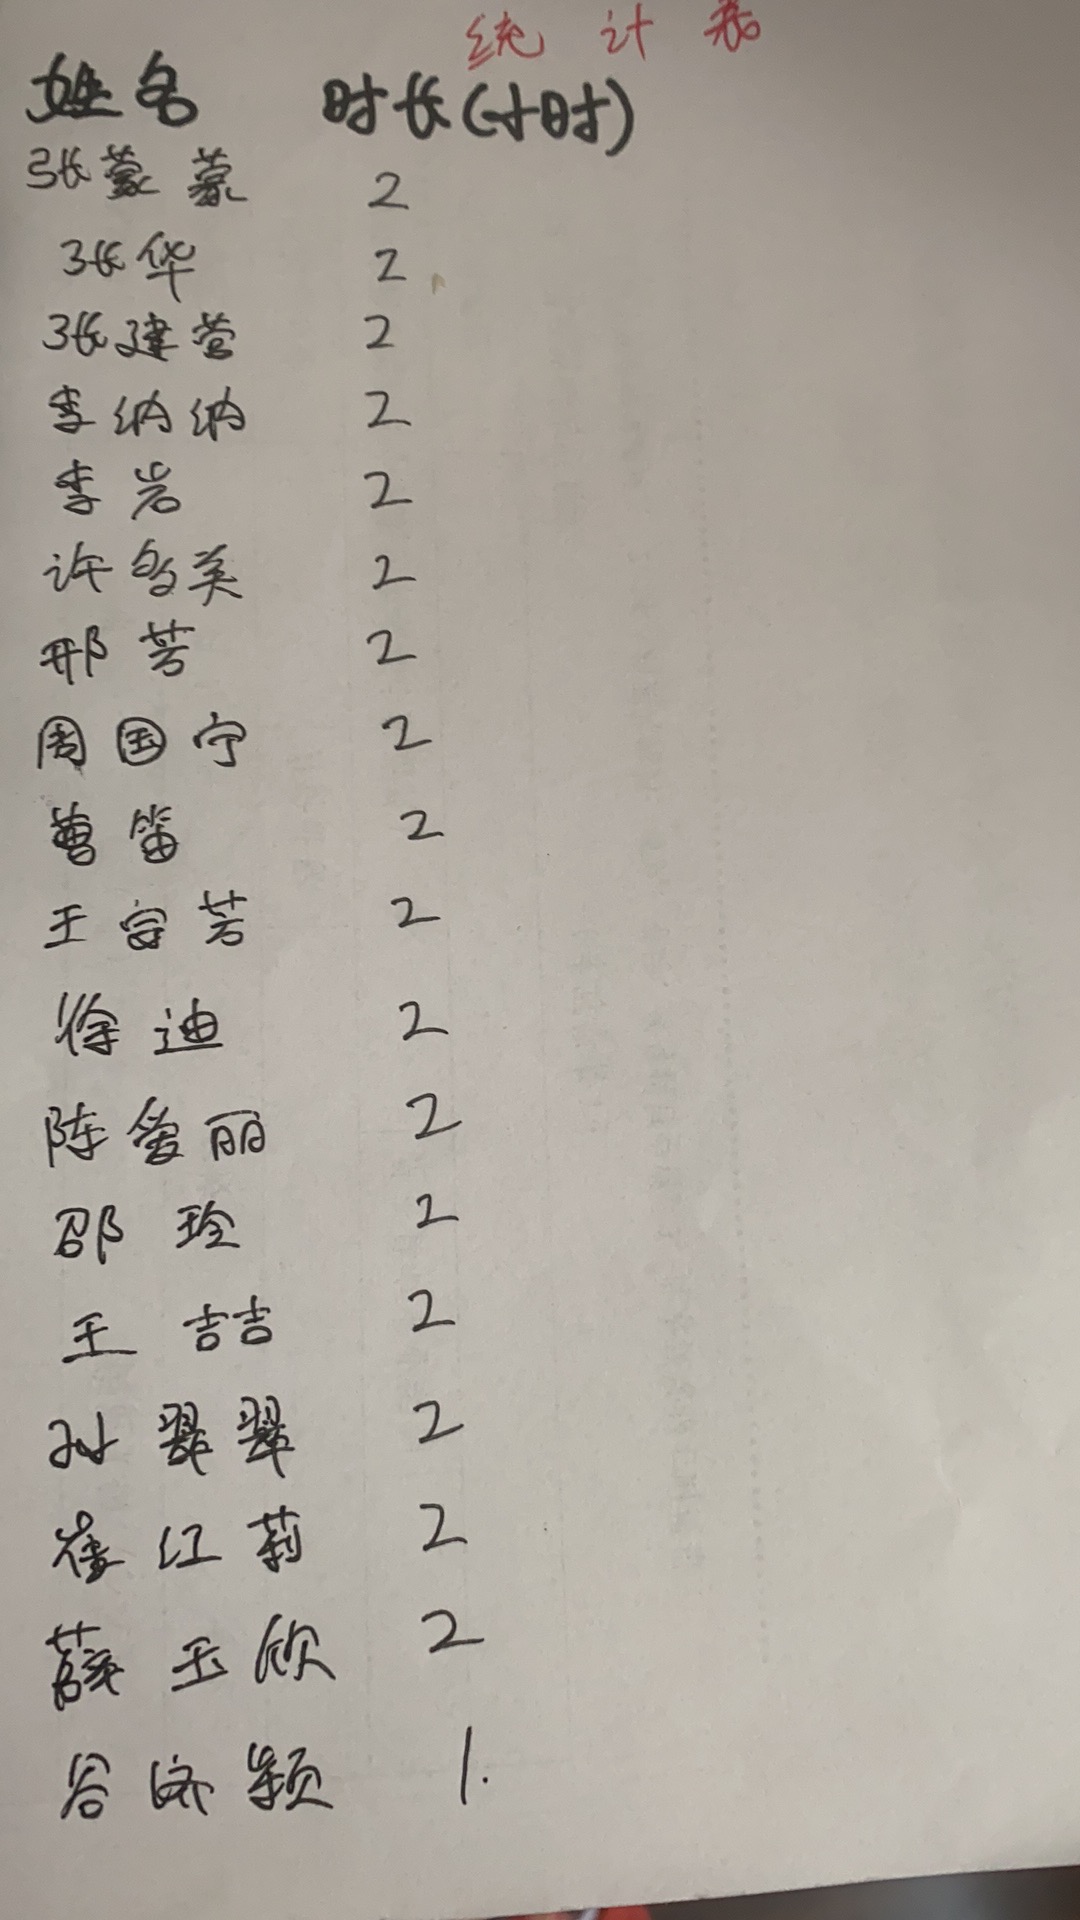 统计表
姓名 时长(小时)
张蒙蒙 2
张华 2
张建营 2
李纳纳 2
李岩 2
许多美 2
邢芳 2
周国宁 2
曹笛 2
王容芳 2
徐迪 2
陈爱丽 2
邵玲 2
王喆 2
孙翠翠 2
崔江莉 2
薛玉欣 2
谷济颖 1.